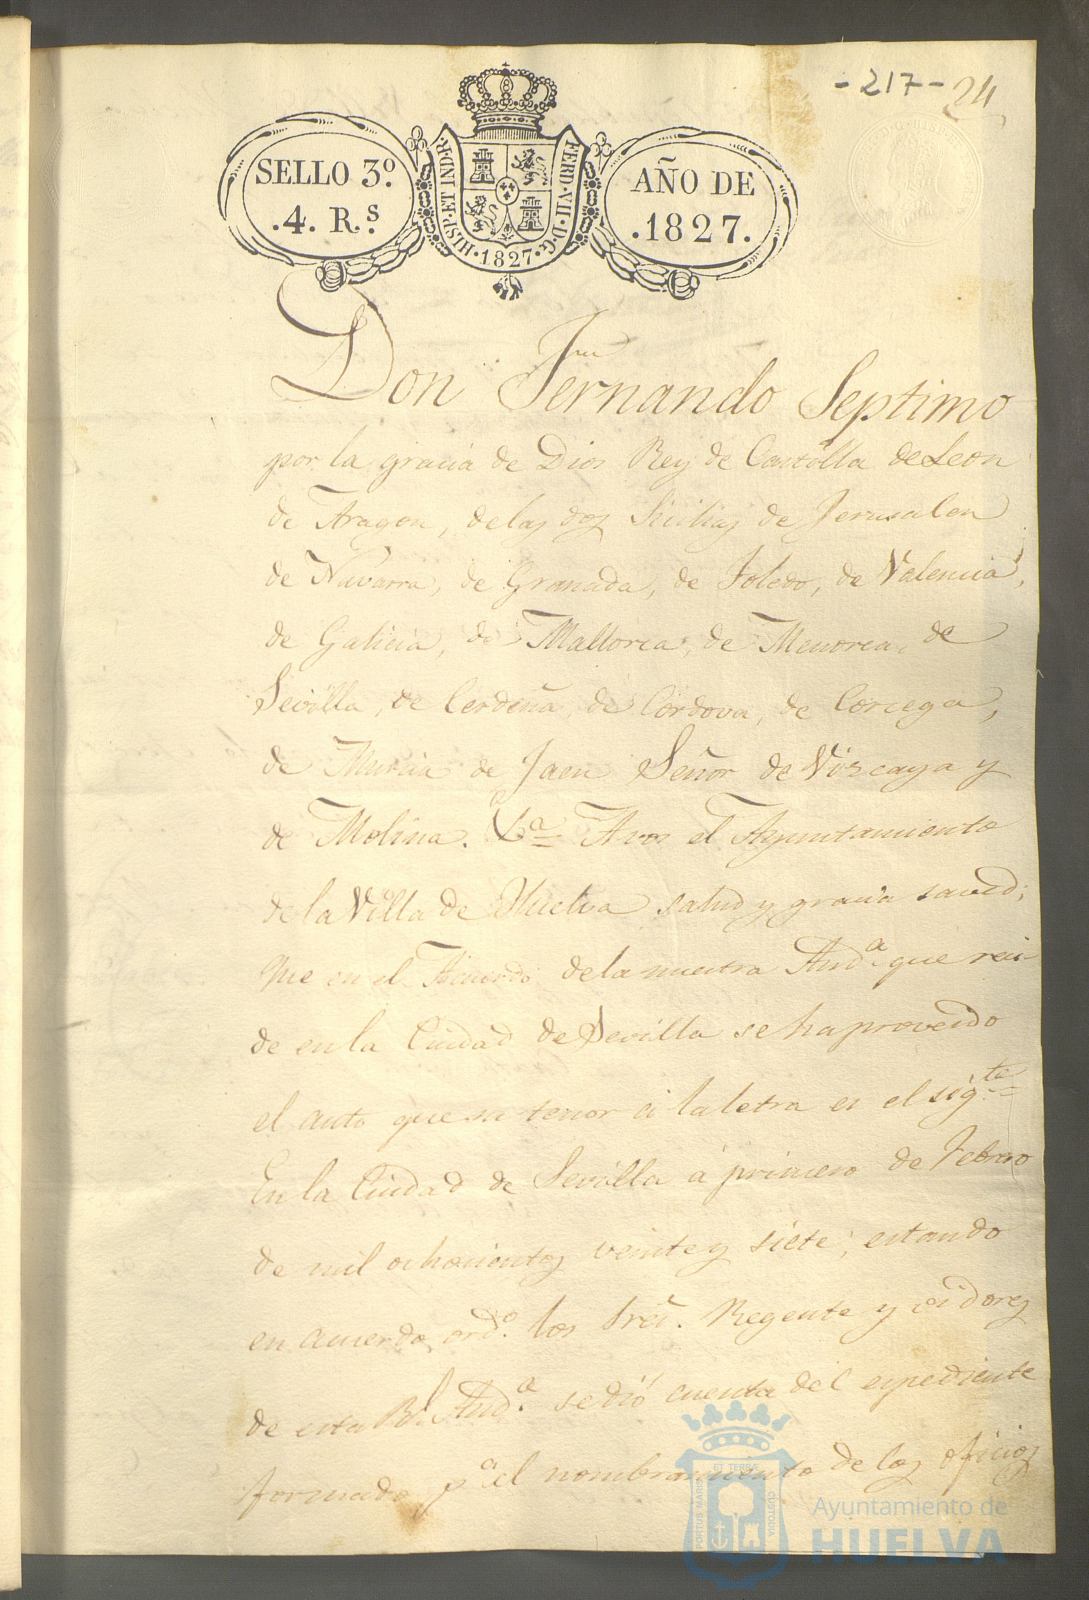 - 217 - 24
SELLO 3º.
.4. R.s
HISP. ET IND. R.
FERD. VII. D. G.
. 1827 .
AÑO DE
.1827.
Don Fernando Septimo
por la gracia de Dios Rey de Castilla de Leon
de Aragon, de las dos Sicilias de Jerusalen
de Navarra, de Granada, de Toledo, de Valencia,
de Galicia, de Mallorca, de Menorca, de
Sevilla, de Cerdeña, de Cordova, de Corcega,
de Murcia de Jaen Señor de Vizcaya y
de Molina. Va A vos el Ayuntamiento
de la Villa de Huelva salud y gracia saved;
Que en el Acuerdo de la nuestra Auda. que reci-
de en la Ciudad de Sevilla se ha proveido
el auto que su tenor a la letra es el sigte.=
En la Ciudad de Sevilla á primero de Febrero
de mil ochocientos veinte y siete; estando
en acuerdo ordo. los Sres. Regente y oidores
de esta Rl. Auda. se dió cuenta del expediente
formado pa. el nombramiento de los oficios
PORTUS MARIS
ET TERRÆ
CUSTODIA
Ayuntamiento de
HUELVA